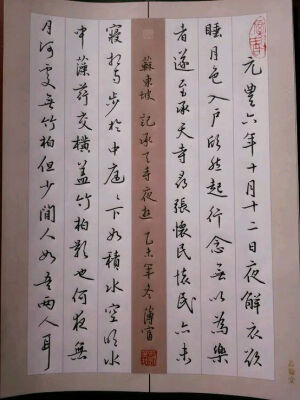 元豐六年十月十二日夜解衣欲
睡月色入戶欣然起行念無以為樂
者遂至承天寺尋張懷民懷民亦未
蘇東坡 記承天寺夜遊 乙未年冬
寢相與步於中庭〻下如積水空明水
中藻荇交橫蓋竹柏影也何夜無
月何處無竹柏但少閒人如吾兩人耳